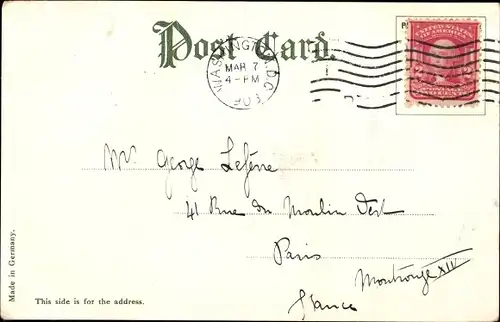 Post Card.
WASHINGTON, D.C.
MAR 7
4-PM
UNITED STATES
OF AMERICA
Mr. George Lefèvre
41 Rue du Moulin Vert
Paris
Montrouge XIV
France
Made in Germany.
This side is for the address.